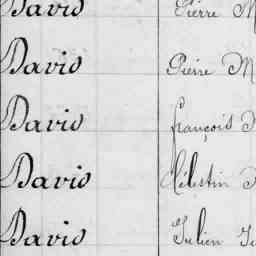 David Pierre M
David Pierre M
David François
David Célestin
David Julien